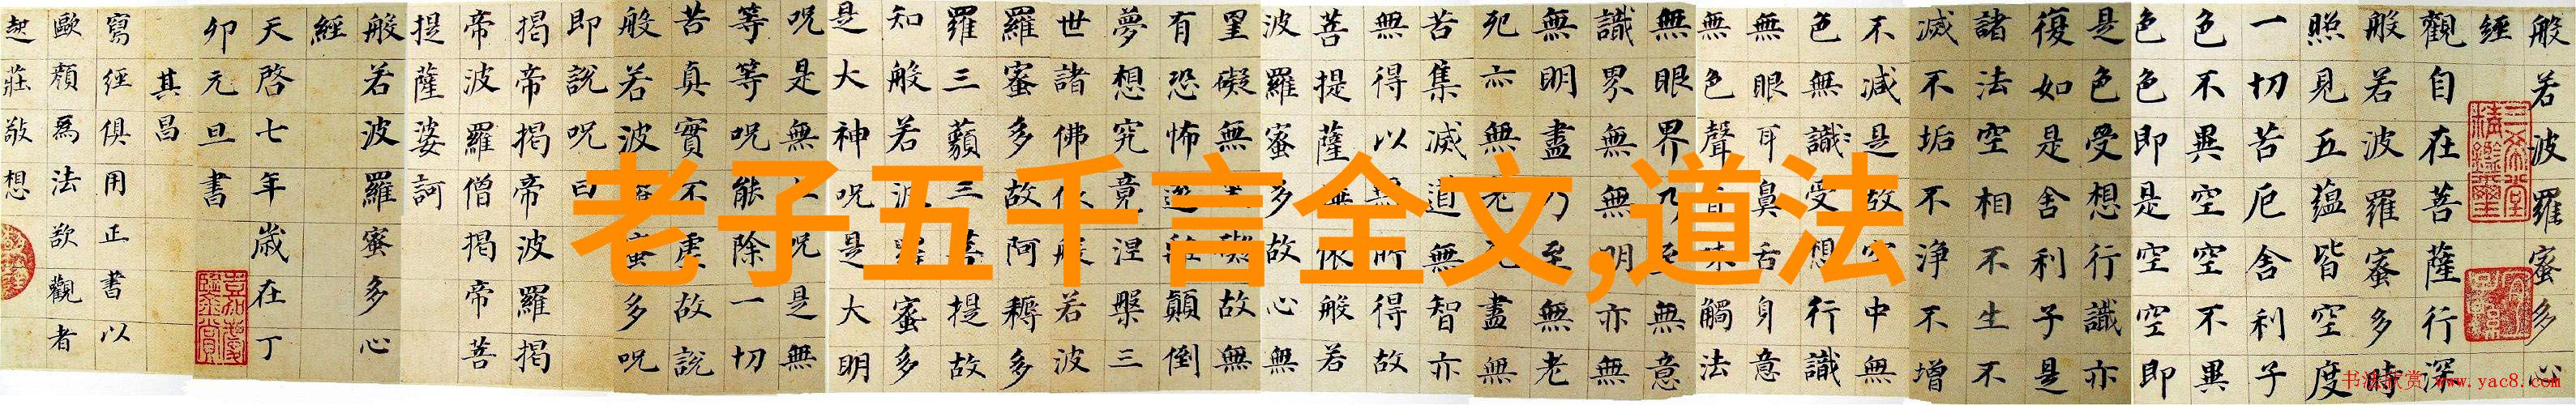 老子五千言全文,道法
般若波羅蜜多心
經
觀自在菩薩行深
般若波羅蜜多時
照見五蘊皆空度
一切苦厄舍利子
色不異空空不異
色色即是空空即
是色受想行識亦
復如是舍利子是
諸法空相不生不
滅不垢不淨不增
不減是故空中無
色無識受想行識
無眼耳鼻舌身意
無色聲香味觸法
無眼界乃至無意
識界無無明亦無
無明盡乃至無老
死亦無老死盡無
苦集滅道無智亦
無得以無所得故
菩提薩埵依般若
波羅蜜多故心無
罣礙無罣礙故無
有恐怖遠離顛倒
夢想究竟涅槃三
世諸佛依般若波
羅蜜多故阿耨多
羅三藐三菩提故
知般若波羅蜜多
是大神呪是大明
呪是無上呪是無
等等呪能除一切
苦真實不虛故說
般若波羅蜜多呪
即說呪曰
揭帝揭帝波羅揭
帝波羅僧揭帝菩
提薩婆訶
般若波羅蜜多心
經
天啓七年歲在丁
卯元旦書
其昌
寫經俱用正書以
歐顏爲法欲觀者
起莊敬想
三希堂精鑑璽
书法欣赏 www.yac8.com